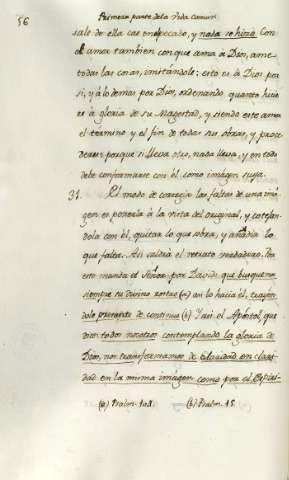 56
Primera parte de la Vida comun
sale de ella cae en pecado, y nada se hizo. Con
el amar tambien con que ama à Dios, ame
todas las cosas, imitandole; esto es à Dios por
si, y à lo demas por Dios, ordenando quanto hicie
re à gloria de su Magestad, y siendo este amor
el termino y el fin de todas sus obras, y proce
deres porque si lleva
nada lleva, y en todo
debe conformarse con èl como imagen suya.
31. El modo de corregir las faltas de una imá
gen es ponerla à la vista del original, y cotejan
dola con èl, quitar lo que sobra, y añadir lo
que falta. Asi saldrá el retrato verdadero. Por
esto manda el Señor por David que busquemos
siempre su divino rostro (a) asi lo hacía èl, trayen
dolo presente de continuo (b) Y asi el Apóstol, que
dice todos nosotros contemplando la gloria de
Dios, nos transformamos de claridad en clari
dad en la misma imágen como por el Espiri-
(a) Psalm. 104. (b) Psalm. 15.